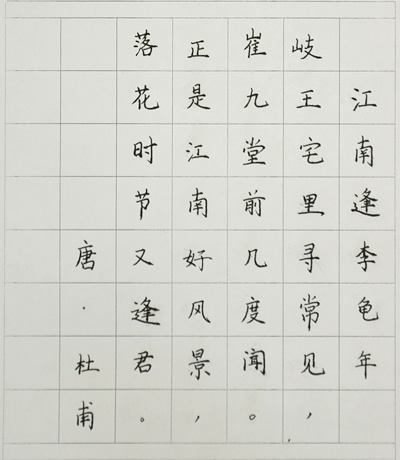 江南逢李龟年
岐王宅里寻常见，
崔九堂前几度闻。
正是江南好风景，
落花时节又逢君。
唐·杜甫